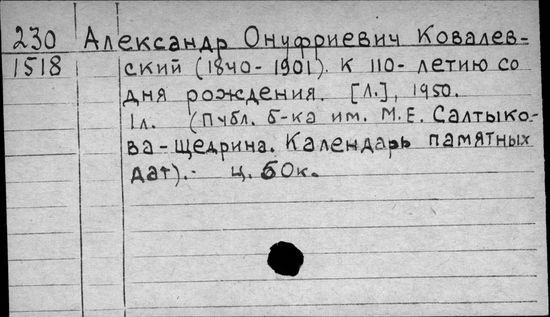 230 Александр Онуфриевич Ковалев-
1518 ский (1840-1901). К 110-летию со
дня рождения. [Л.], 1950.
1л. (Публ. б-ка им. М.Е. Салтыко-
ва-Щедрина. Календарь памятных
дат).- ц. 50к.